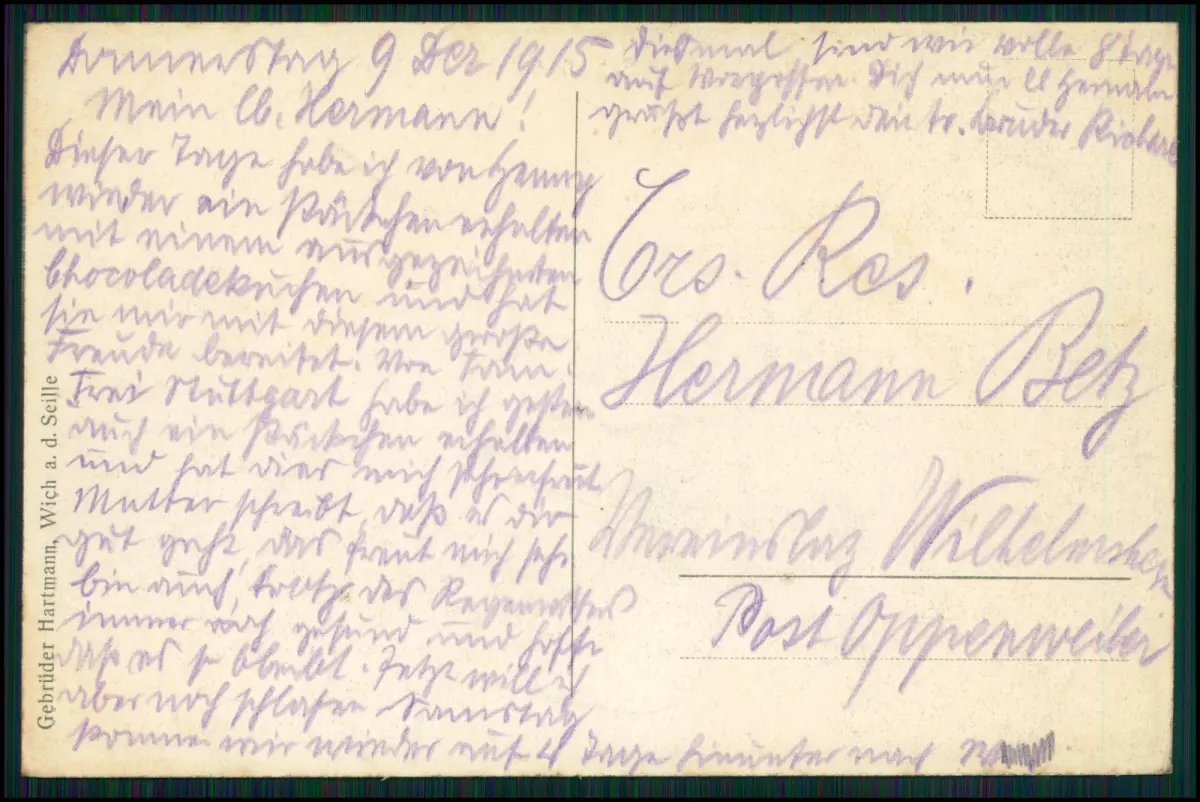 Donnerstag 9 Dez 1915
Mein lb. Hermann!
Dieser Tage habe ich von Henny
wieder ein Päckchen erhalten
mit einem ausgezeichneten
Chocoladekuchen und hat
sie mir mit diesem große
Freude bereitet. Von Fam.
Frei Stuttgart habe ich gestern
auch ein Päckchen erhalten
und hat dies mich sehr erfreut.
Mutter schreibt, daß es dir
gut geht, das freut mich sehr
bin auch, trotz des Regenwetters
immer noch gesund und hoffe
daß es so bleibt. Jetzt will ich
aber noch schlafen Samstag
kommen wir wieder auf 4 Tage hinunter nach
Diesmal sind wir volle 8 Tage
auf
grüßt herzlichst dein tr. Bruder Richard
Ers. Res.
Hermann Betz
Vereinslaz
Post Oppenweiler
Gebrüder Hartmann, Wich a. d. Seille